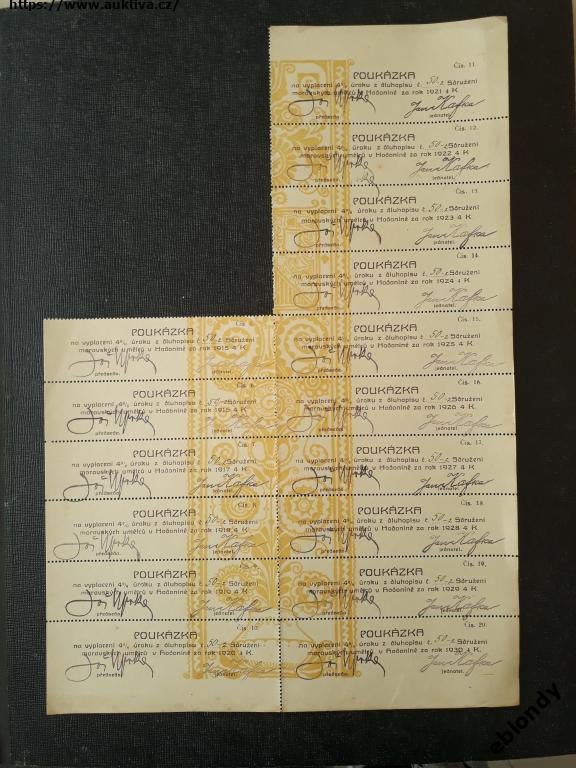 https://www.auktiva.cz/
Čís. 11.
POUKÁZKA
na vyplacení 4% úroku z dluhopisu č. 50 Sdružení
moravských umělců v Hodoníně za rok 1921 4 K.
Jož Uprka
Jan Kafka
předseda.
jednatel.
Čís. 12.
POUKÁZKA
na vyplacení 4% úroku z dluhopisu č. 50 Sdružení
moravských umělců v Hodoníně za rok 1922 4 K.
Jož Uprka
Jan Kafka
předseda.
jednatel.
Čís. 13.
POUKÁZKA
na vyplacení 4% úroku z dluhopisu č. 50 Sdružení
moravských umělců v Hodoníně za rok 1923 4 K.
Jož Uprka
Jan Kafka
předseda.
jednatel.
Čís. 14.
POUKÁZKA
na vyplacení 4% úroku z dluhopisu č. 50 Sdružení
moravských umělců v Hodoníně za rok 1924 4 K.
Jož Uprka
Jan Kafka
předseda.
jednatel.
Čís.
POUKÁZKA
na vyplacení 4% úroku z dluhopisu č. 50 Sdružení
moravských umělců v Hodoníně za rok 1915 4 K.
Jož Uprka
předseda.
Čís. 6.
POUKÁZKA
na vyplacení 4% úroku z dluhopisu č. 50 Sdružení
moravských umělců v Hodoníně za rok 4 K.
Jož Uprka
předseda.
Čís. 7.
POUKÁZKA
na vyplacení 4% úroku z dluhopisu č. 50 Sdružení
moravských umělců v Hodoníně za rok 1917 4 K.
Jož Uprka
Jan Kafka
předseda.
Čís. 8.
POUKÁZKA
na vyplacení 4% úroku z dluhopisu č. 50 Sdružení
moravských umělců v Hodoníně za rok 1918 4 K.
Jož Uprka
Jan Kafka
předseda.
POUKÁZKA
na vyplacení 4% úroku z dluhopisu č. 50 Sdružení
moravských umělců v Hodoníně za rok 1919 4 K.
Jož Uprka
Jan Kafka
předseda.
Čís. 10.
POUKÁZKA
na vyplacení 4% úroku z dluhopisu č. 50 Sdružení
moravských umělců v Hodoníně za rok 1920 4 K.
Jož Uprka
Jan Kafka
předseda.
Čís. 15.
POUKÁZKA
na vyplacení 4% úroku z dluhopisu č. 50 Sdružení
moravských umělců v Hodoníně za rok 1925 4 K.
Jož Uprka
Jan Kafka
předseda.
jednatel.
Čís. 16.
POUKÁZKA
na vyplacení 4% úroku z dluhopisu č. 50 Sdružení
moravských umělců v Hodoníně za rok 1926 4 K.
Jož Uprka
Jan Kafka
předseda.
jednatel.
Čís. 17.
POUKÁZKA
na vyplacení 4% úroku z dluhopisu č. 50 Sdružení
moravských umělců v Hodoníně za rok 1927 4 K.
Jož Uprka
Jan Kafka
předseda.
jednatel.
Čís. 18.
POUKÁZKA
na vyplacení 4% úroku z dluhopisu č. 50 Sdružení
moravských umělců v Hodoníně za rok 1928 4 K.
Jož Uprka
Jan Kafka
předseda.
jednatel.
Čís. 19.
POUKÁZKA
na vyplacení 4% úroku z dluhopisu č. 50 Sdružení
moravských umělců v Hodoníně za rok 1929 4 K.
Jož Uprka
Jan Kafka
předseda.
Čís. 20.
POUKÁZKA
na vyplacení 4% úroku z dluhopisu č. 50 Sdružení
moravských umělců v Hodoníně za rok 1930 4 K.
Jož Uprka
Jan Kafka
předseda.
jednatel.
eblondy